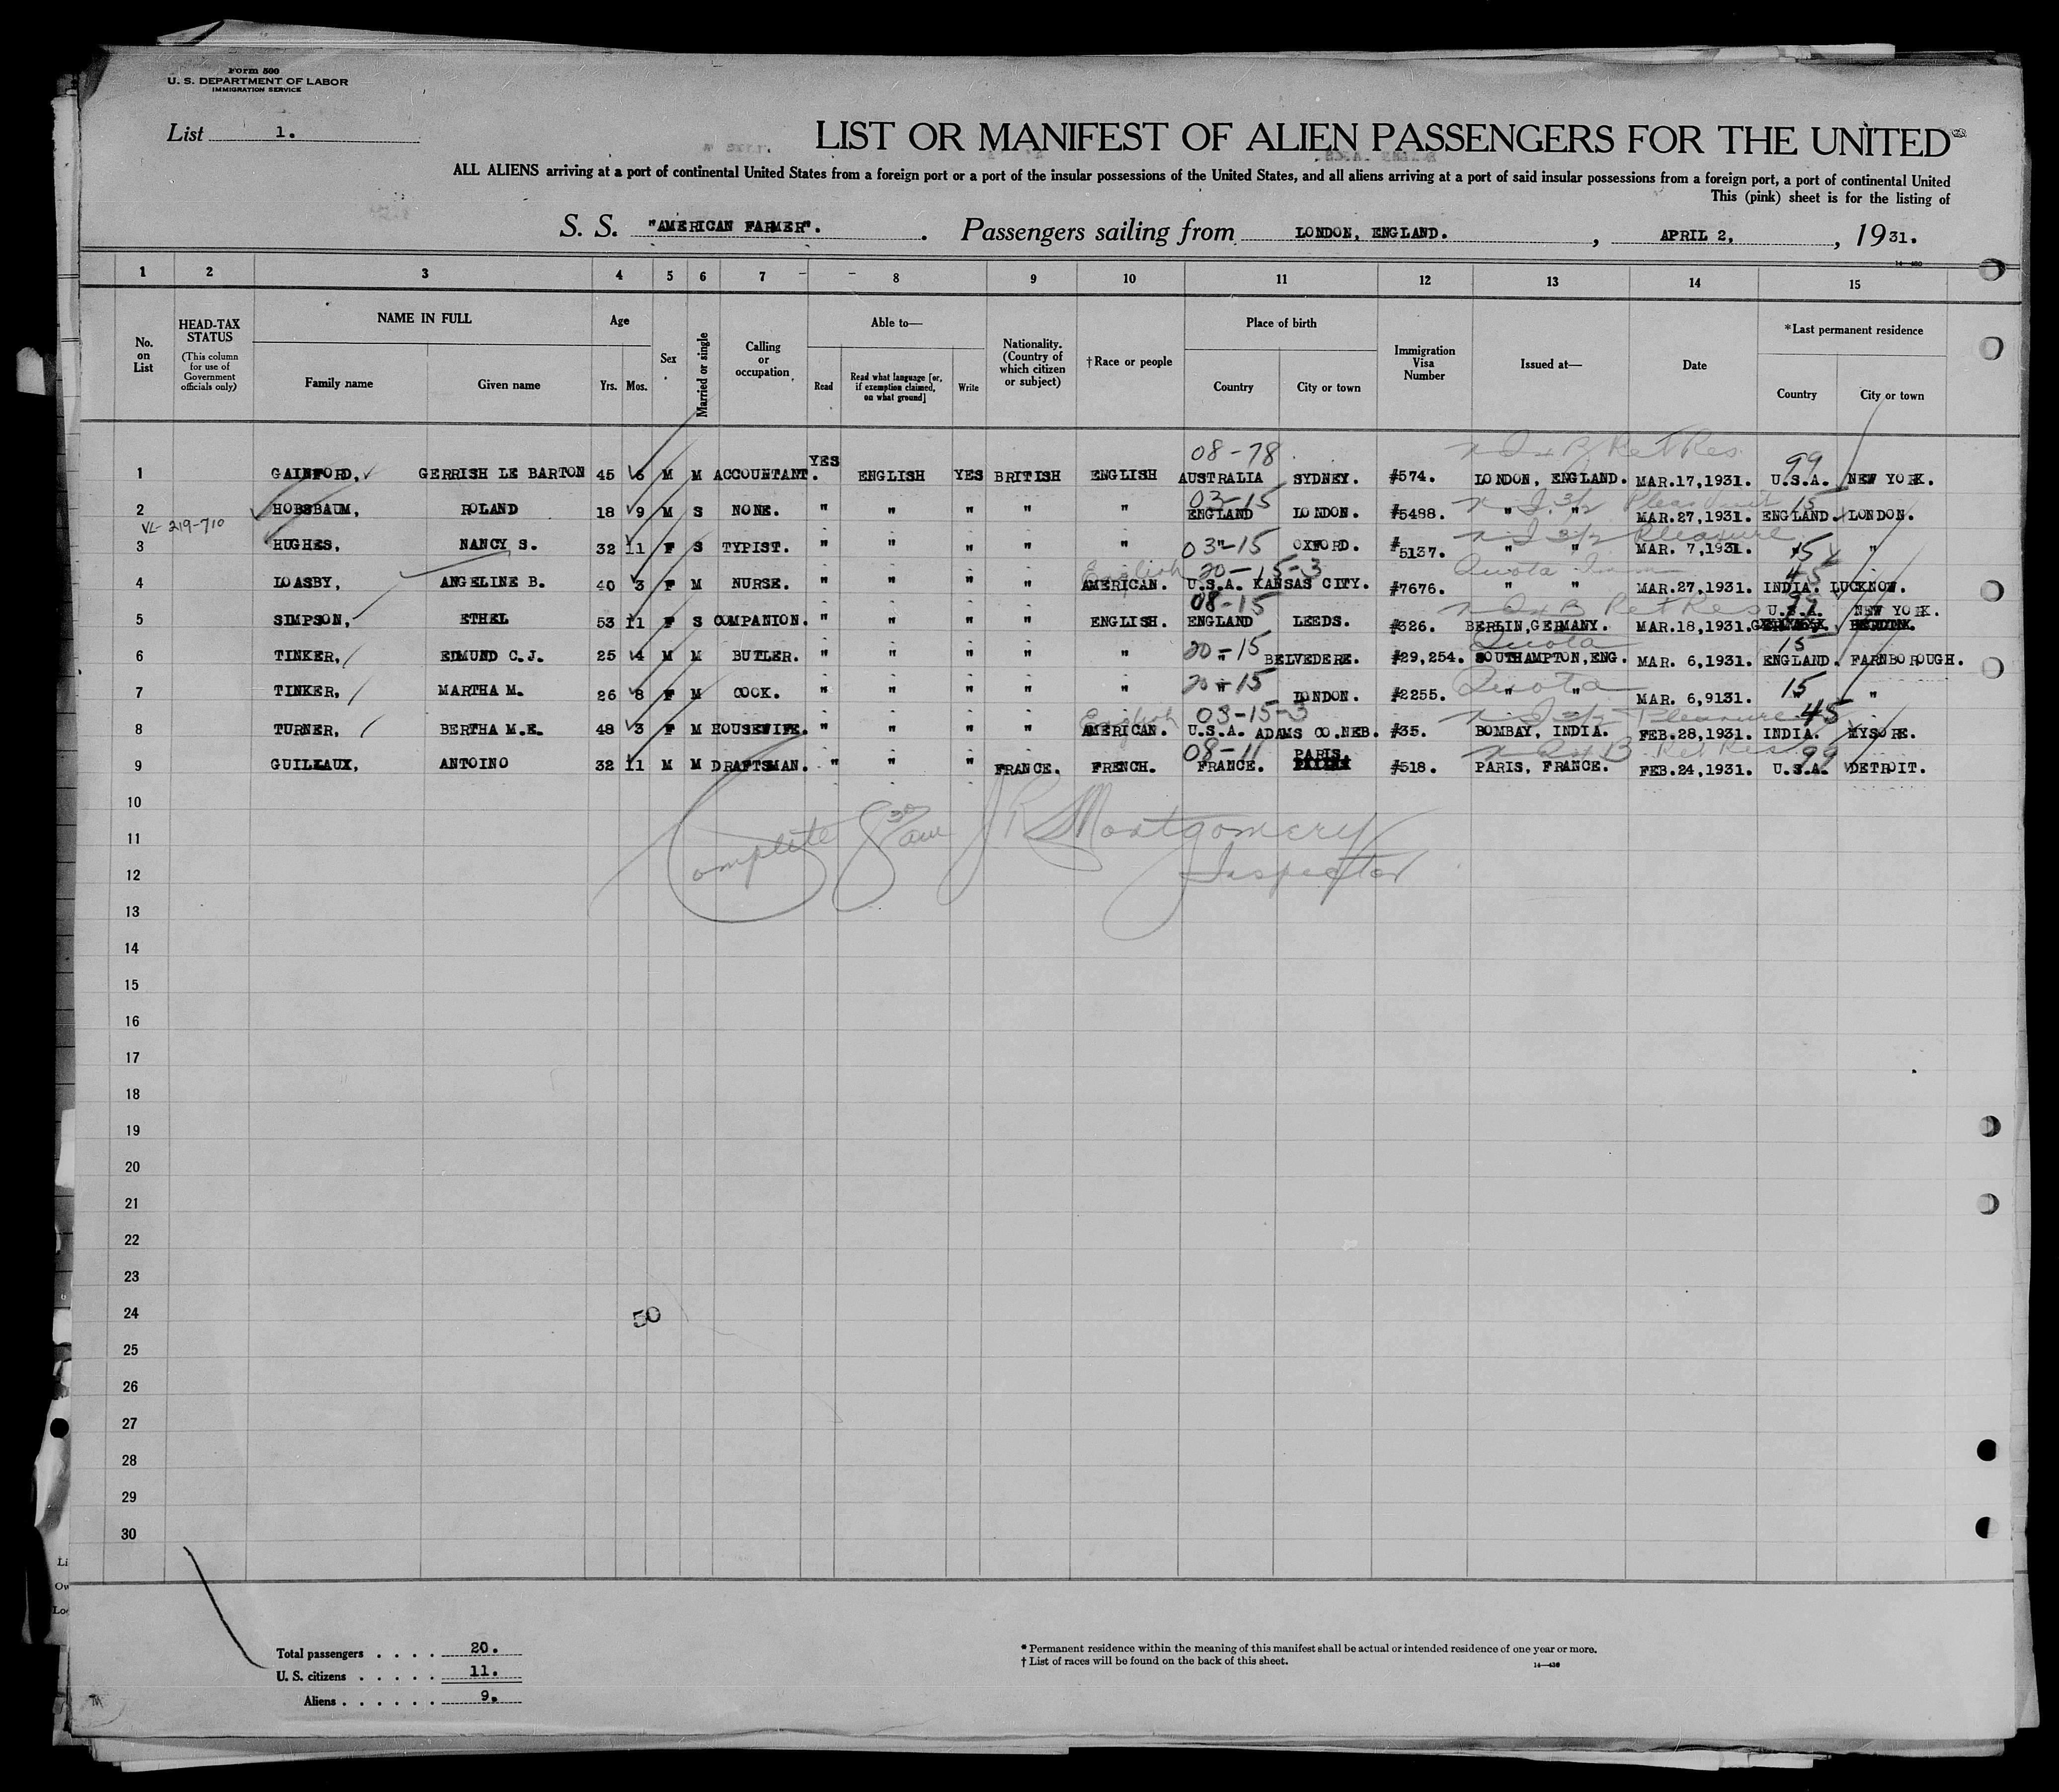 Form 500
U. S. DEPARTMENT OF LABOR
IMMIGRATION SERVICE
List 1.
LIST OR MANIFEST OF ALIEN PASSENGERS FOR THE UNITED
ALL ALIENS arriving at a port of continental United States from a foreign port or a port of the insular possessions of the United States, and all aliens arriving at a port of said insular possessions from a foreign port, a port of continental United
This (pink) sheet is for the listing of
S. S. "AMERICAN FARMER". Passengers sailing from LONDON, ENGLAND. , APRIL 2, , 1931.
1 2 3 4 5 6 7 8 9 10 11 12 13 14 15
No. on List
HEAD-TAX STATUS
(This column for use of Government officials only)
NAME IN FULL
Family name Given name
Age
Yrs. Mos.
Sex
Married or single
Calling or occupation
Able to—
Read Read what language [or, if exemption claimed, on what ground] Write
Nationality. (Country of which citizen or subject)
†Race or people
Place of birth
Country City or town
Immigration Visa Number
Issued at—
Date
*Last permanent residence
Country City or town
08-78 Ret Res 99
1 GAINFORD, GERRISH LE BARTON 45 6 M M ACCOUNTANT. YES ENGLISH YES BRITISH ENGLISH AUSTRALIA SYDNEY. #574. LONDON, ENGLAND. MAR.17,1931. U.S.A. NEW YORK.
03-15 15
2 HOBSBAUM, ROLAND 18 9 M S NONE. " " " " " ENGLAND LONDON. #5488. " " MAR.27,1931. ENGLAND. LONDON.
VL-219-710
03-15 Pleasure 15
3 HUGHES, NANCY S. 32 11 F S TYPIST. " " " " " " OXFORD. #5137. " " MAR. 7,1931. " "
English 20-15-3 Quota 45
4 LOASBY, ANGELINE B. 40 3 F M NURSE. " " " " AMERICAN. U.S.A. KANSAS CITY. #7676. " " MAR.27,1931. INDIA. LUCKNOW.
08-15 Ret Res 99 U.S.A. NEW YORK.
5 SIMPSON, ETHEL 53 11 F S COMPANION. " " " " ENGLISH. ENGLAND LEEDS. #326. BERLIN,GERMANY. MAR.18,1931.
20-15 Quota 15
6 TINKER, EDMUND C.J. 25 4 M M BUTLER. " " " " " " BELVEDERE. #29,254. SOUTHAMPTON,ENG. MAR. 6,1931. ENGLAND. FARNBOROUGH.
20-15 Quota 15
7 TINKER, MARTHA M. 26 8 F M COOK. " " " " " " LONDON. #2255. " " MAR. 6,9131. " "
English 03-15-3 Pleasure 45
8 TURNER, BERTHA M.E. 48 3 F M HOUSEWIFE. " " " " AMERICAN. U.S.A. ADAMS CO.NEB. #35. BOMBAY, INDIA. FEB.28,1931. INDIA. MYSORE.
08-11 PARIS. Ret Res 99
9 GUILLAUX, ANTOINO 32 11 M M DRAFTSMAN. " " " FRANCE. FRENCH. FRANCE. #518. PARIS, FRANCE. FEB.24,1931. U.S.A. DETROIT.
10
Complete J R Montgomery
11
12 Inspector
13
14
15
16
17
18
19
20
21
22
23
24 50
25
26
27
28
29
30
Total passengers . . . . 20.
U. S. citizens . . . . . 11.
Aliens . . . . . . 9.
* Permanent residence within the meaning of this manifest shall be actual or intended residence of one year or more.
† List of races will be found on the back of this sheet.